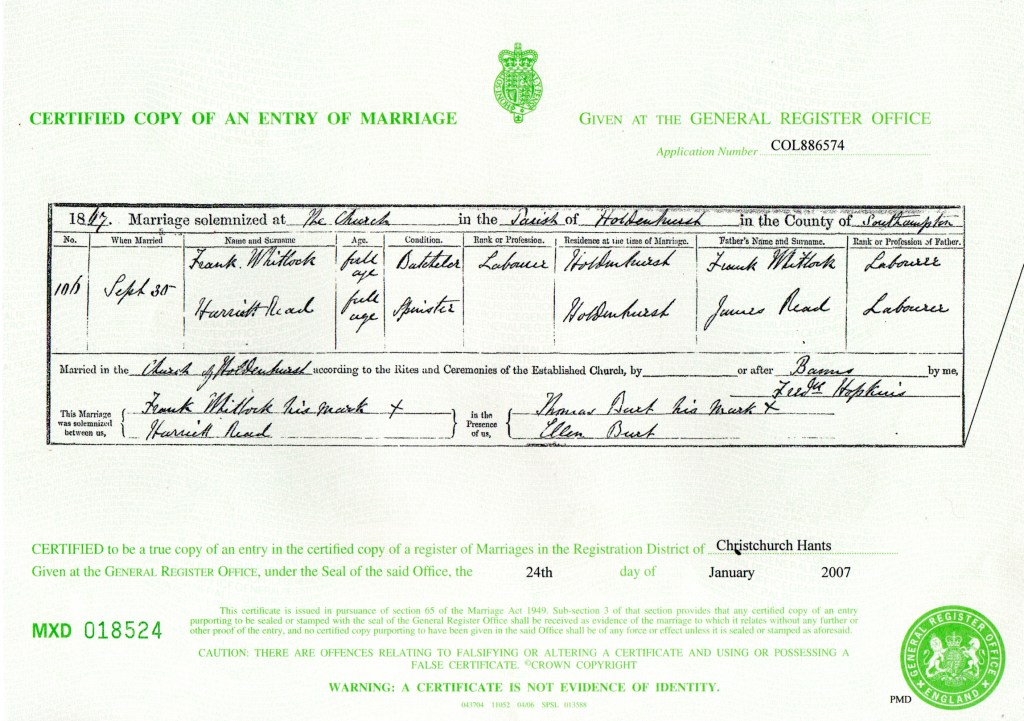 CERTIFIED COPY OF AN ENTRY OF MARRIAGE
GIVEN AT THE GENERAL REGISTER OFFICE
Application Number COL886574
Marriage solemnized at The Church in the Parish of Holdenhurst in the County of Southampton
No. When Married Name and Surname Age. Condition. Rank or Profession. Residence at the time of Marriage. Father's Name and Surname. Rank or Profession of Father.
Frank Whitlock full age Batchelor Labourer Holdenhurst Frank Whitlock Labourer
Sept 30
Harriett Read full age Spinster Holdenhurst James Read Labourer
Married in the Church of Holdenhurst according to the Rites and Ceremonies of the Established Church, by or after Banns by me,
Fredk Hopkins
This Marriage was solemnized between us, Frank Whitlock his mark X in the Presence of us, Thomas Burt his mark X
Harriett Read Ellen Burt
CERTIFIED to be a true copy of an entry in the certified copy of a register of Marriages in the Registration District of Christchurch Hants
Given at the GENERAL REGISTER OFFICE, under the Seal of the said Office, the 24th day of January 2007
MXD 018524
This certificate is issued in pursuance of section 65 of the Marriage Act 1949. Sub-section 3 of that section provides that any certified copy of an entry
purporting to be sealed or stamped with the seal of the General Register Office shall be received as evidence of the marriage to which it relates without any further or
other proof of the entry, and no certified copy purporting to have been given in the said Office shall be of any force or effect unless it is sealed or stamped as aforesaid.
CAUTION: THERE ARE OFFENCES RELATING TO FALSIFYING OR ALTERING A CERTIFICATE AND USING OR POSSESSING A
FALSE CERTIFICATE. ©CROWN COPYRIGHT
WARNING: A CERTIFICATE IS NOT EVIDENCE OF IDENTITY.
043704 11052 04/06 SPSL 013588
GENERAL REGISTER OFFICE
ENGLAND
PMD